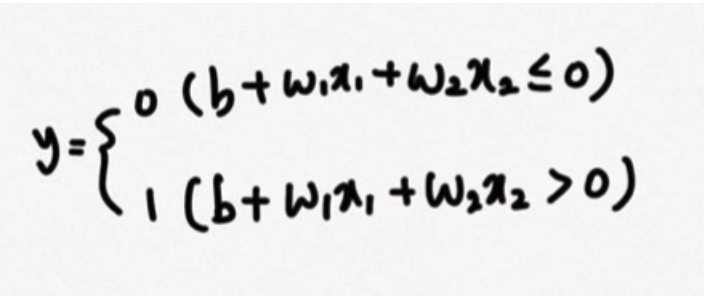 y = { 0 (b + w₁x₁ + w₂x₂ ≤ 0)
1 (b + w₁x₁ + w₂x₂ > 0)